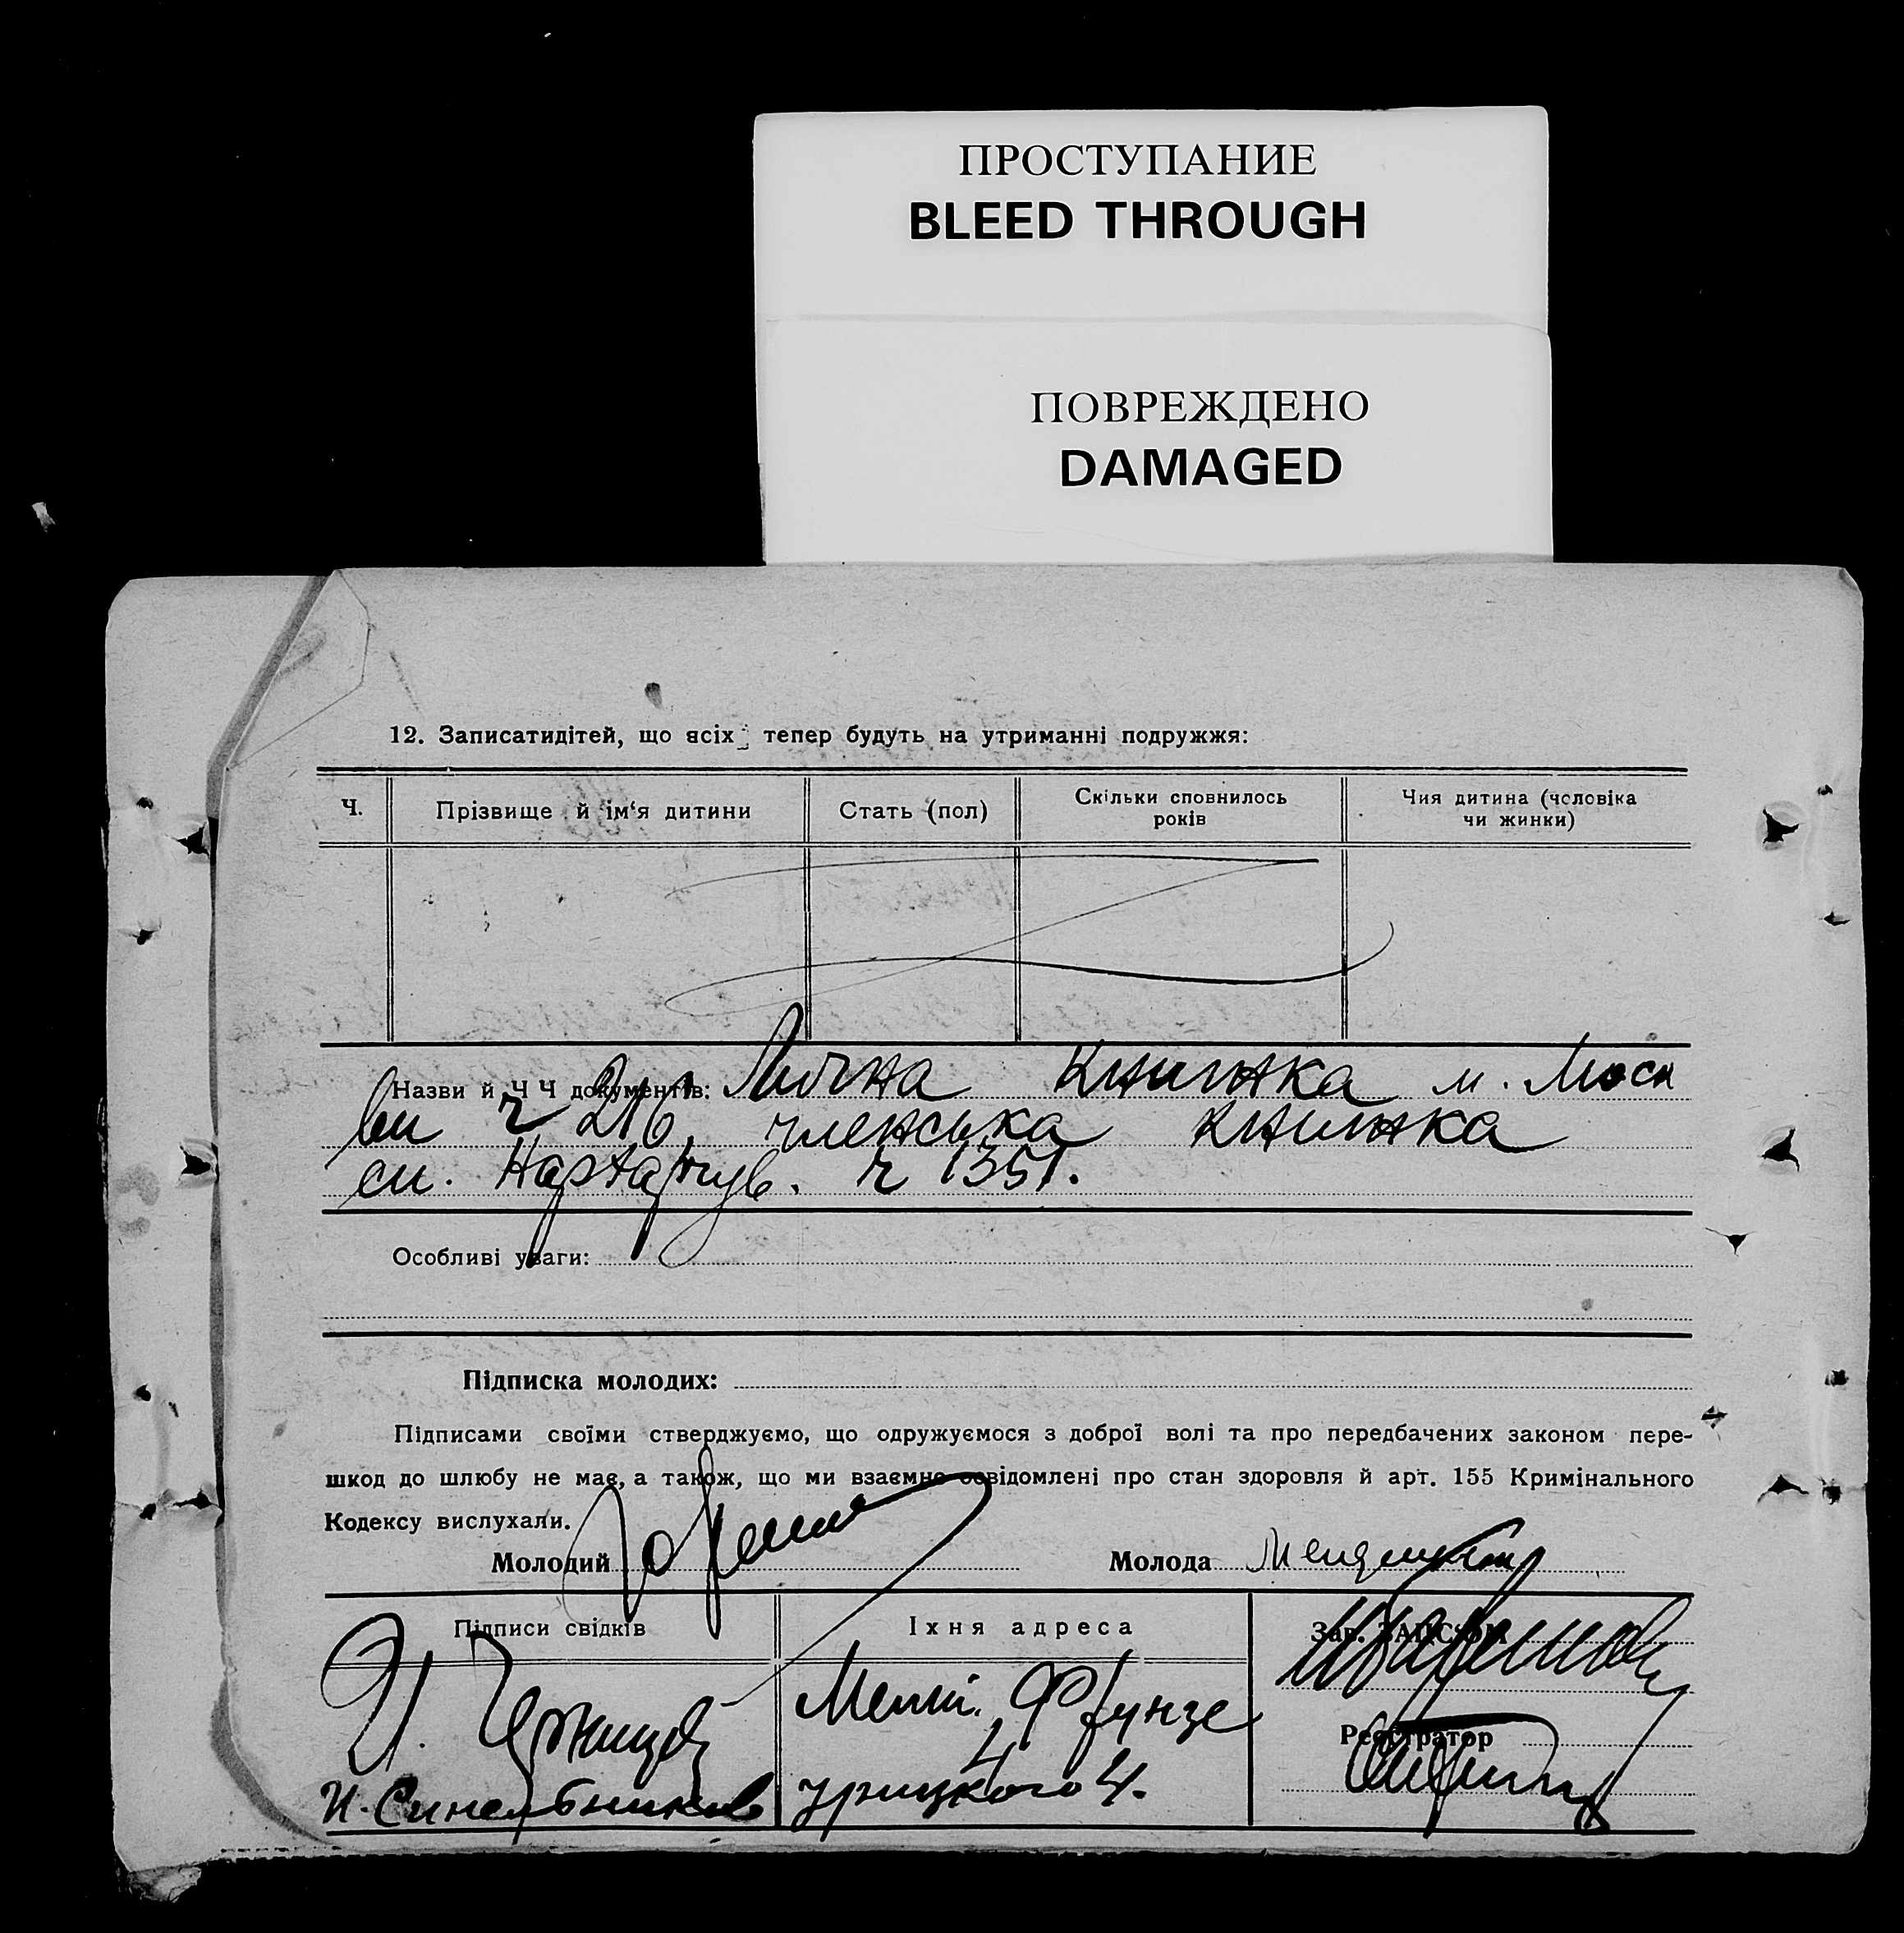 ПРОСТУПАНИЕ
BLEED THROUGH
ПОВРЕЖДЕНО
DAMAGED
12. Записатидітей, що всіх тепер будуть на утриманні подружжя:
Ч.
Прізвище й ім‘я дитини
Стать (пол)
Скільки сповнилось
років
Чия дитина (чоловіка
чи жинки)
Назви й Ч Ч документів: Лична Книжка м. Моск
ви ч 216, членська книжка
сп. Нархарчув. ч 1351.
Особливі уваги:
Підписка молодих:
Підписами своїми стверджуємо, що одружуємося з доброї волі та про передбачених законом пере-
шкод до шлюбу не має, а також, що ми взаємно освідомлені про стан здоровля й арт. 155 Кримінального
Кодексу вислухали.
Молодий
Молода
Підписи свідків
Їхня адреса
Зав. ЗАГС‘ОМ
Фрунзе
4
Реєстратор
И. Синельников
урицкого 4.